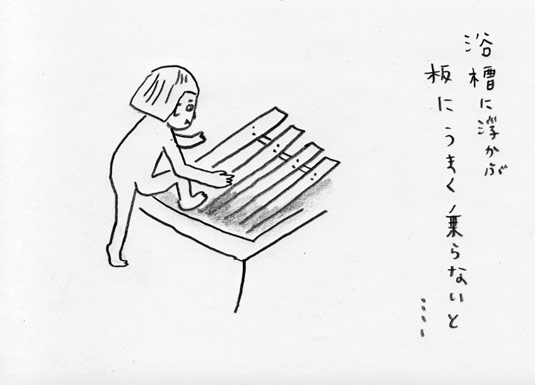 浴槽に浮かぶ
板にうまく乗らないと……